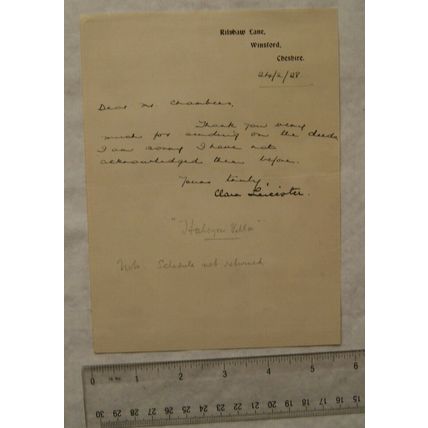 Rilshaw Lane,
Winsford,
Cheshire.
24/2/28
Dear Mr. Chambers,
Thank you very
much for sending on the deeds
I am sorry I have not
acknowledged them before.
Yours truly,
Clara Leicester.
"Halcyon Villa"
Note Schedule not returned
0 1 2 3 4 5 6
30 29 28 27 26 25 24 23 22 21 20 19 18 17 16 15